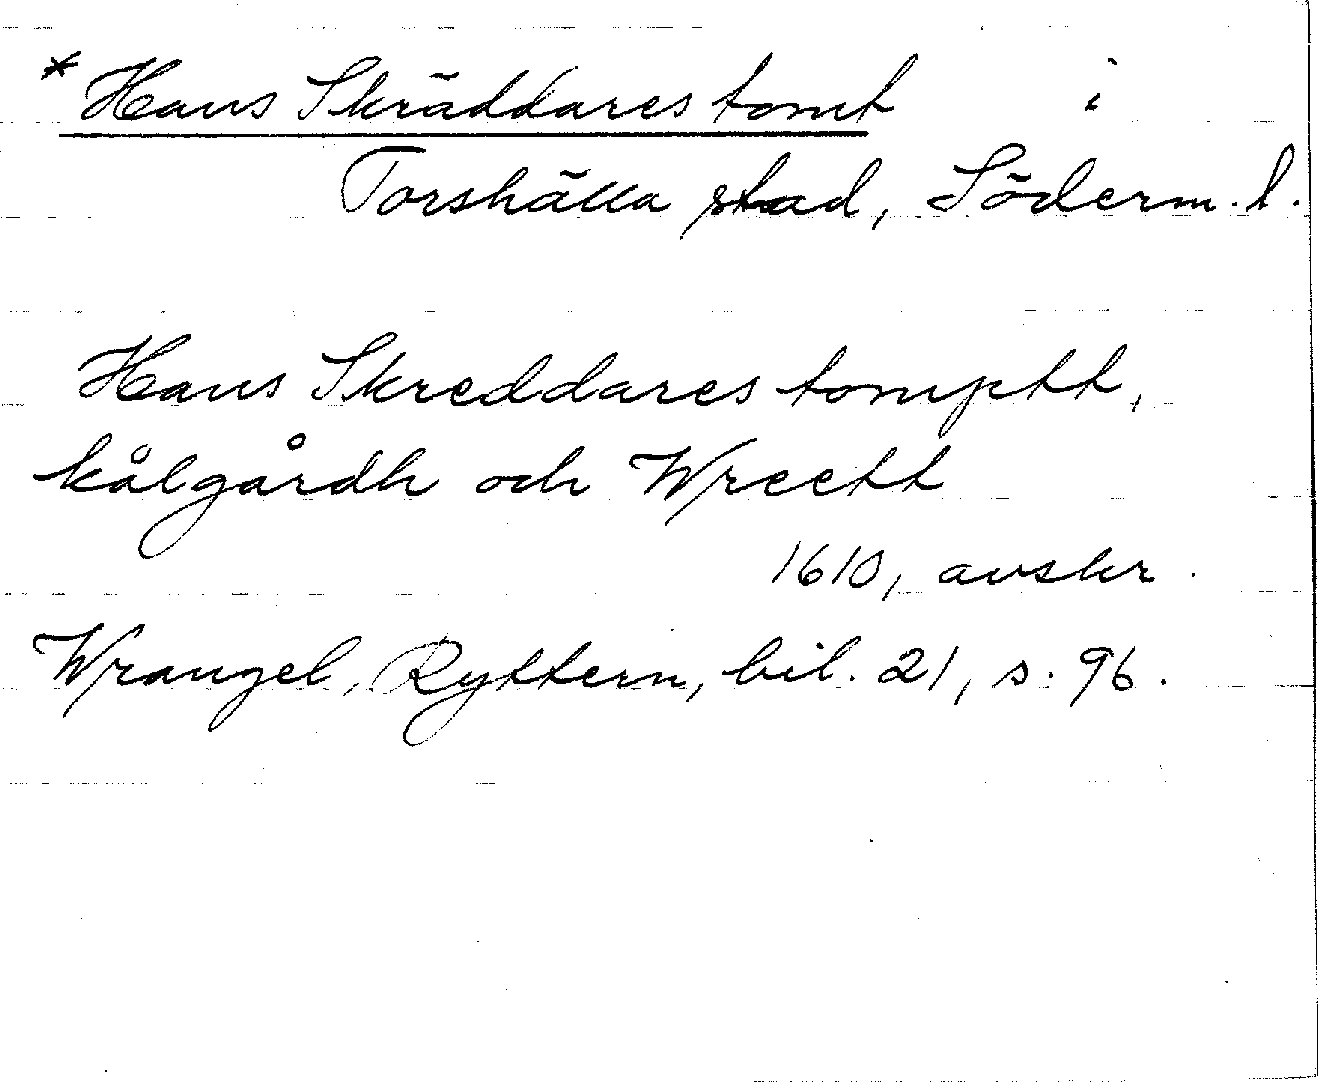 * Hans Skräddares tomt i
Torshälla stad, Söderm. l.
Hans Skreddares tomptt,
kålgårdh och Wreett
1610, avskr.
Wrangel, Ryttern, bil. 21, s. 96.